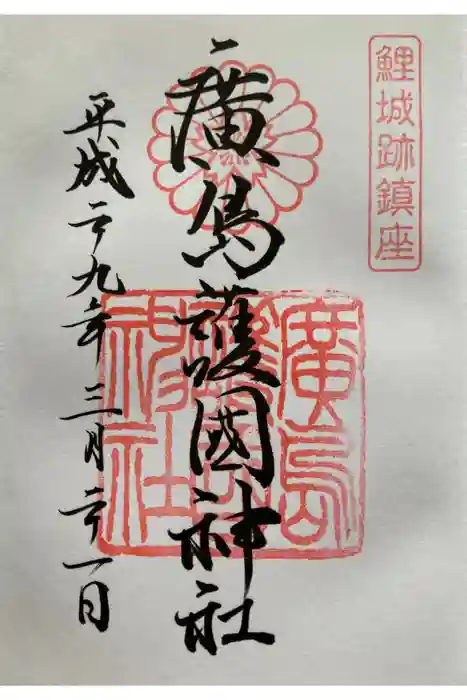 鯉城跡鎮座
廣島護國神社
平成二九年三月二十一日
廣島護國神社